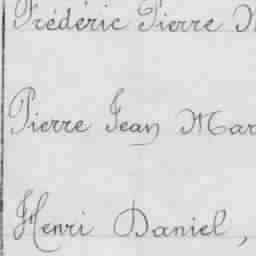 Frédéric Pierre
Pierre Jean Mar
Henri Daniel,